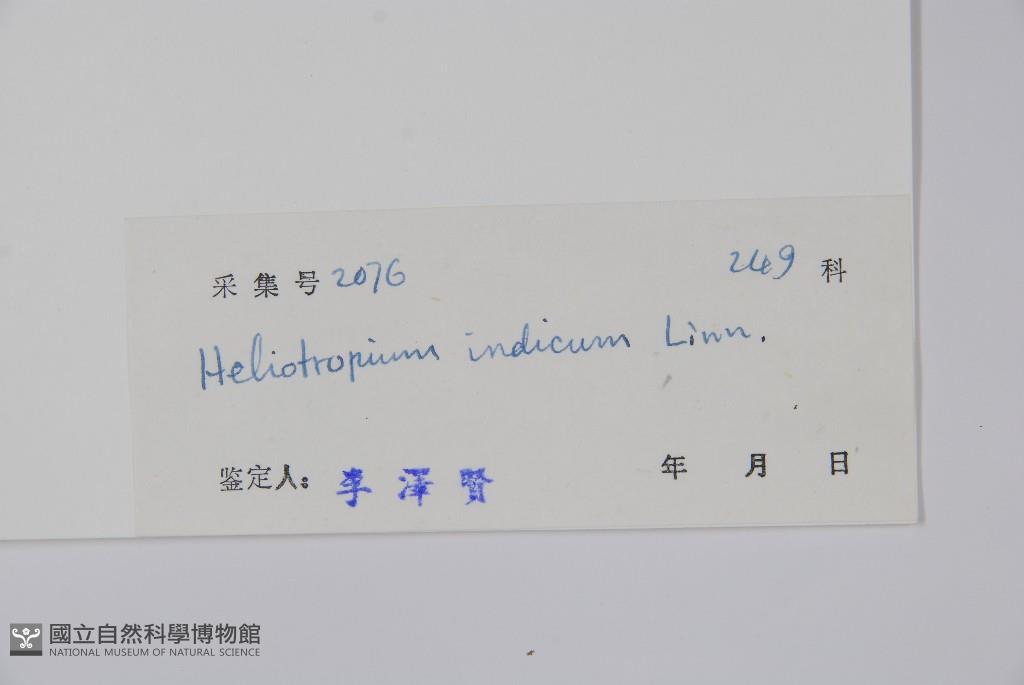 采集号 2076 249 科
Heliotropium indicum Linn.
鉴定人: 李澤賢 年 月 日
國立自然科學博物館
NATIONAL MUSEUM OF NATURAL SCIENCE